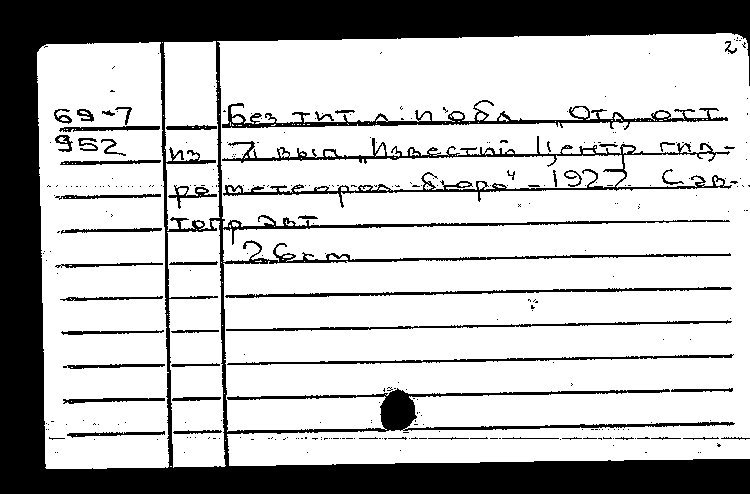 2
69-7 Без тит. л. и обл. „Отд. отт.
952 из 7 вып. „Известий Центр. гид-
рометеорол. бюро“ - 1927 С ав-
тогр. авт.
26 см